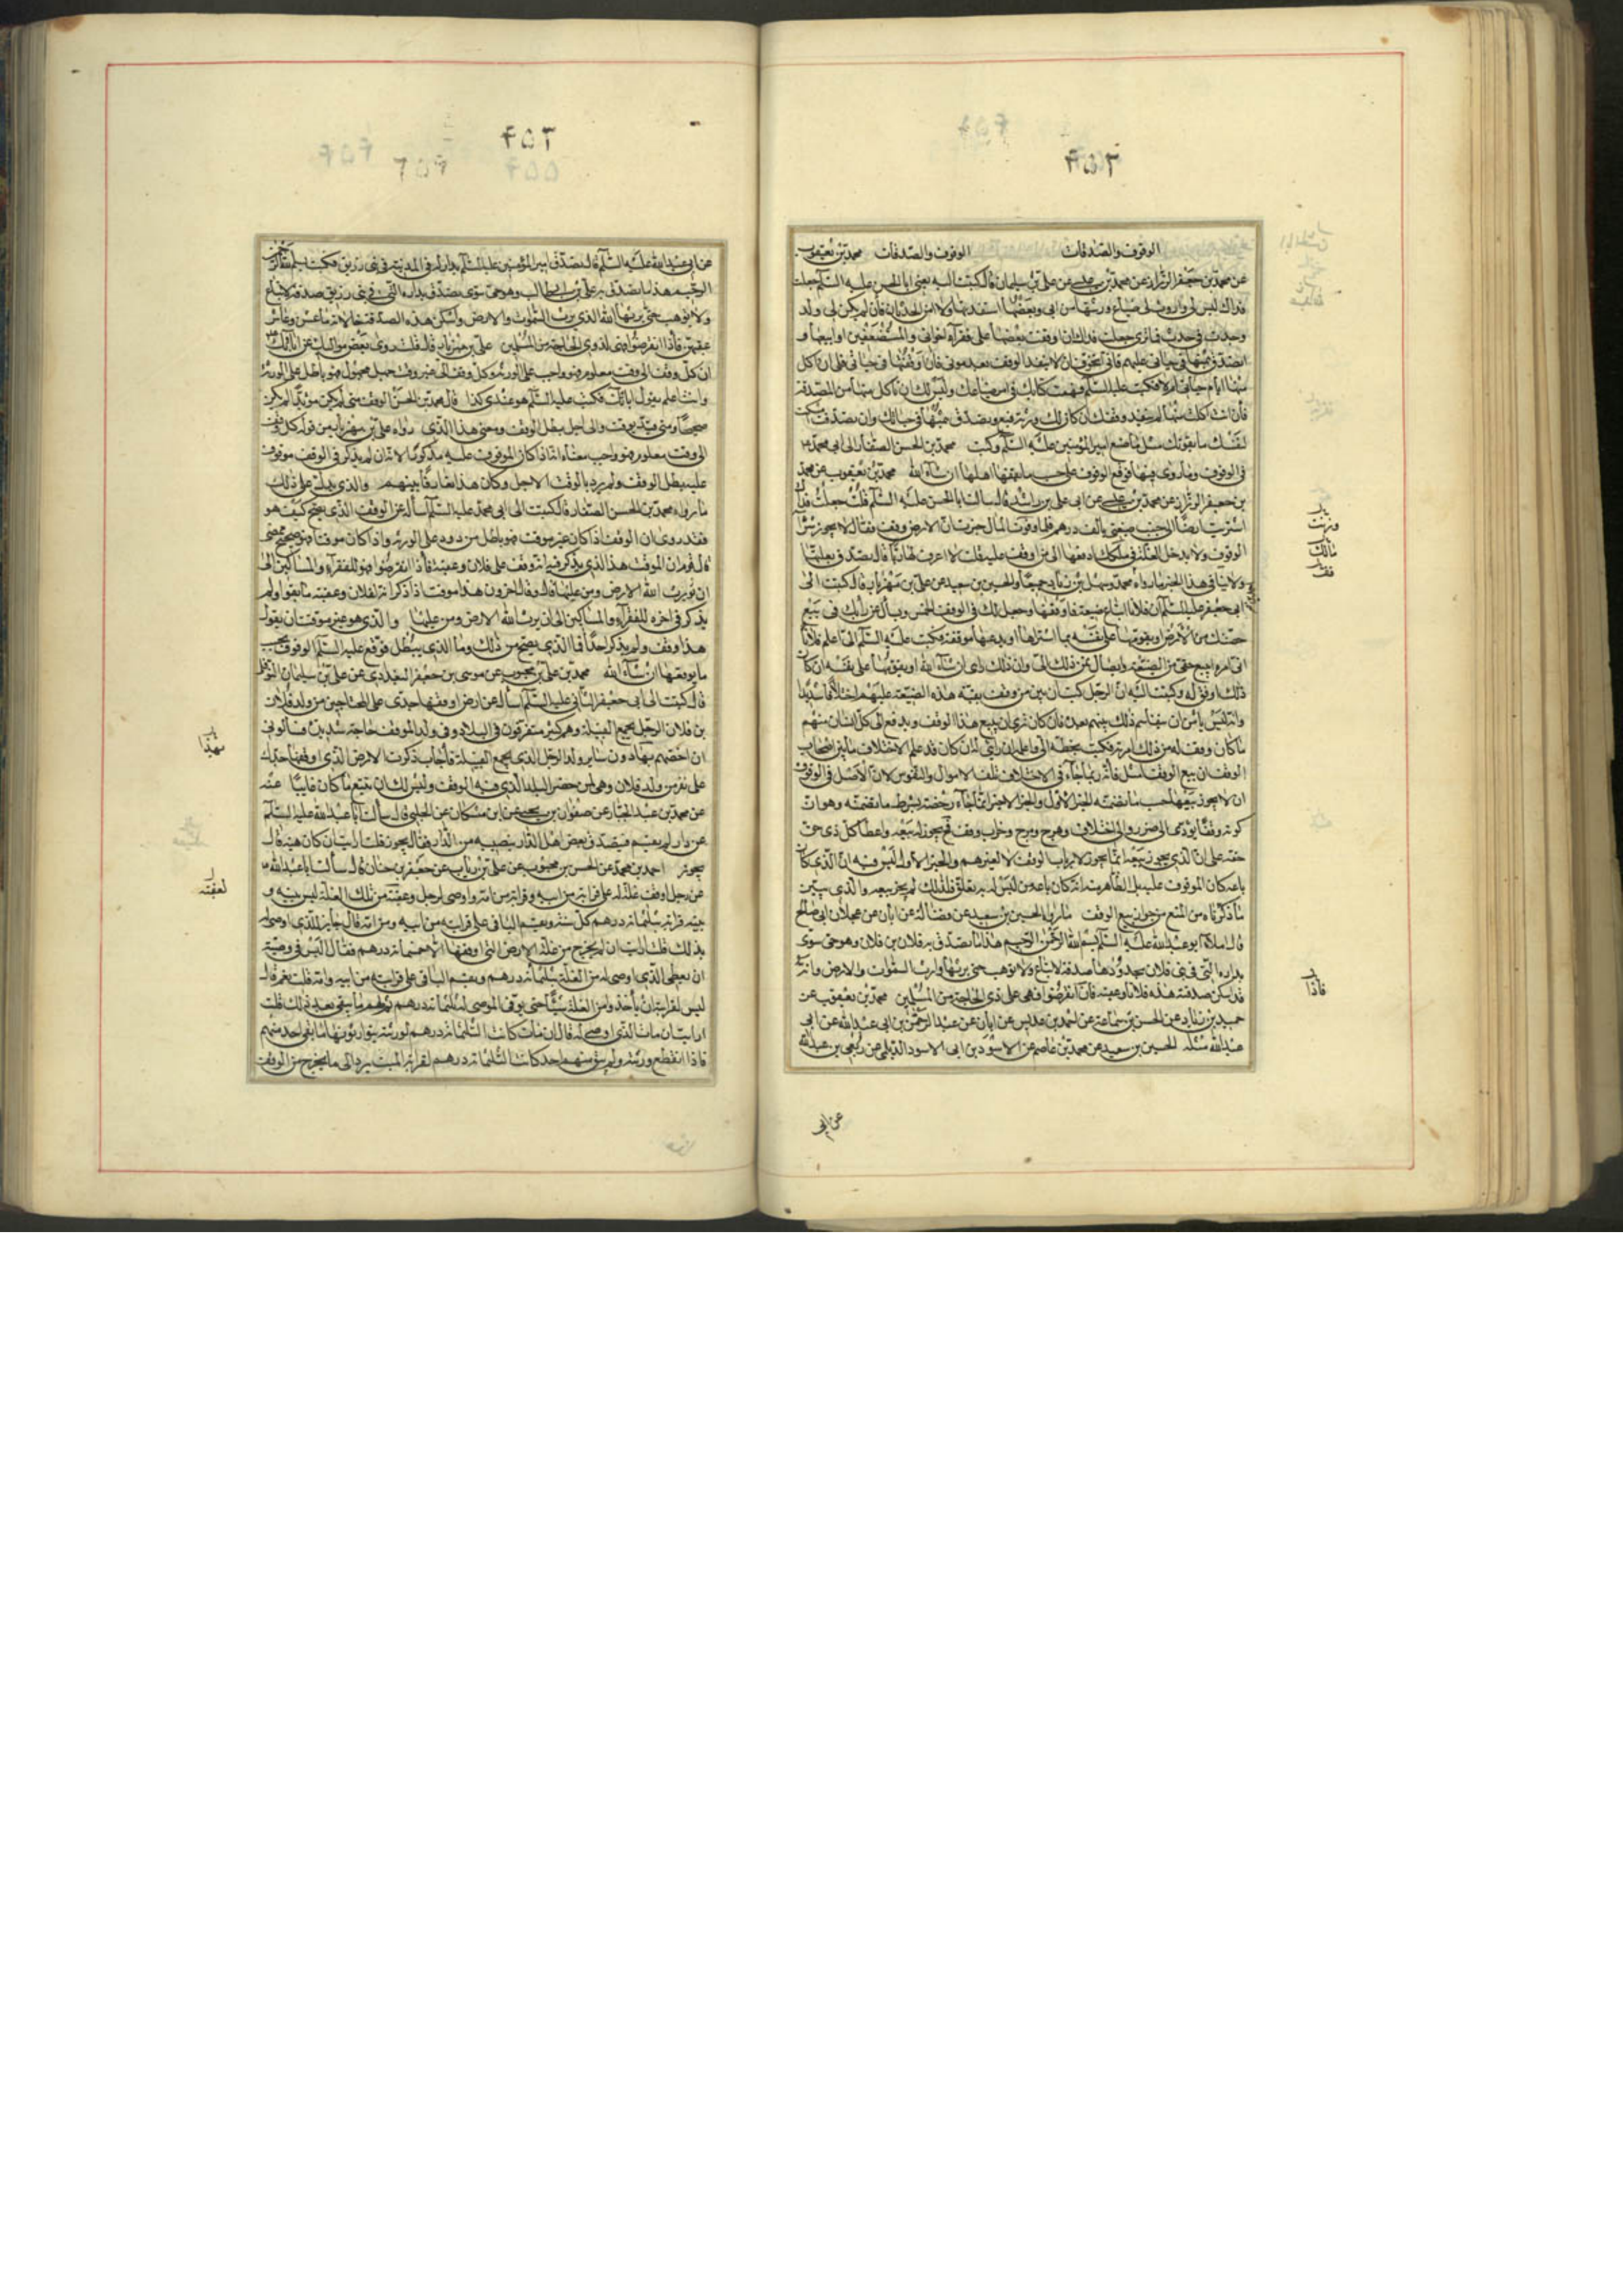 ۴۵۳
الوقوف والصدقات الوقوف والصدقات محمد بن يعقوب
عن محمد بن جعفر الرزاز عن محمد بن عيسى عن علي بن سليمان قال كتبت اليه يعني ابا الحسن عليه السلم جعلت
فداك ليس لي ولد ولي ضياع ورثتها من ابي وبعضها استفدتها ولا امن الحدثان فان لم يكن لي ولد
وحدث بي حدث فما ترى جعلت فداك ان اوقف بعضها على فقرآء اخواني والمستضعفين او ابيعها و
اتصدق بثمنها في حياتي عليهم فاني اتخوف ان لا ينفذ الوقف بعد موتي فان وقفتها في حياتي فلي ان اكل
منها ايام حياتي ام لا فكتب عليه السلم فهمت كتابك في امر ضياعك وليس لك ان تاكل منها من الصدقة
فان انت اكلت منها لم ينفذ وقفك ان كان لك ورثة فبع وتصدق ببعض ثمنها في حياتك وان تصدقت امسكت
لنفسك ما يقوتك مثل ما صنع امير المؤمنين عليه السلم وكتب محمد بن الحسن الصفار الى ابي محمد
في الوقوف وما روى فيها فوقع الوقوف على حسب ما يقفها اهلها ان شآء الله محمد بن يعقوب عن محمد
بن جعفر الرزاز عن محمد بن عيسى عن ابي علي بن راشد قال سالت ابا الحسن عليه السلم قلت جعلت فداك
اشتريت ارضا الى جنب ضيعتي بالف درهم فلما وفرت المال خبرت ان الارض وقف فقال لا يجوز شرآ
الوقوف ولا يدخل الغلة في ملكك ادفعها الى من اوقفت عليه قلت لا اعرف لها ربا قال تصدق بغلتها
ولا ينافي هذا الخبر ما رواه محمد وسهل بن زياد جميعا والحسين بن سعيد عن علي بن مهزيار قال كتبت الى
ابي جعفر عليه السلم ان فلانا ابتاع ضيعة فاوقفها وجعل لك في الوقف الخمس ويسال عن رايك في بيع
حصتك من الارض او يقومها على نفسه بما اشتراها او يدعها موقفة فكتب عليه السلم الي اعلم فلانا
اني امره ببيع حقي من الضيعة وايصال ثمن ذلك الي وان ذلك راى ان شآء الله او يقومها على نفسه ان كان
ذلك اوفق له وكتبت اليه ان الرجل كتب ان بين من وقف بقية هذه الضيعة عليهم اختلافا شديدا
وانه ليس يامن ان يتفاقم ذلك بينهم بعده فان كان ترى ان يبيع هذا الوقف ويدفع الى كل انسان منهم
ما كان وقف له من ذلك امرته فكتب بخطه الي واعلمه ان رايي له ان كان قد علم الاختلاف ما بين اصحاب
الوقف ان بيع الوقف امثل فانه ربما جآء في الاختلاف تلف الاموال والنفوس لان الاصل في الوقوف
ان لا يجوز بيعها حسب ما تضمنه الخبر الاول والخبر الاخير انما جآء رخصة بشرط ما تضمنه وهو ان
كونه وقفا يؤدي الى ضرر والى اختلاف وهرج ومرج وخراب وقف فح يجوز له بيعه واعطا كل ذي حق
حقه على ان الذي يجوز بيعه انما يجوز لارباب الوقف لا لغيرهم والخبر الاول ليس فيه ان الذي كان
باعه كان الموقوف عليه بل الظاهر منه انه كان باعه من ليس له به تعلق فلذلك لم يجز بيعه والذي يبين
ما ذكرناه من المنع من جواز بيع الوقف ما رواه الحسين بن سعيد عن فضالة عن ابان عن عجلان ابي صالح
قال املاه ابو عبد الله عليه السلم بسم الله الرحمن الرحيم هذا ما تصدق به فلان بن فلان وهو حي سوي
بداره التي في بني فلان بحدودها صدقة لا تباع ولا توهب حتى يرثها وارث السموات والارض وانه
قد سكن صدقته هذه فلانا وعقبه فان انقرضوا فهي على ذي الحاجة من المسلمين محمد بن يعقوب عن
حميد بن زياد عن الحسن بن سماعة عن احمد بن عديس عن ابان عن عبد الرحمن بن ابي عبد الله عن ابي
عبد الله مثله الحسين بن سعيد عن محمد بن عاصم عن الاسود بن ابي الاسود الدئلي عن ربعي بن عبد الله
عن ابي
فاذا
۴۵۳
عن ابي عبد الله عليه السلم قال تصدق امير المؤمنين عليه السلم بدار له في المدينة في بني زريق فكتب بسم الله الرحمن
الرحيم هذا ما تصدق به علي بن ابي طالب وهو حي سوي تصدق بداره التي في بني زريق صدقة لا تباع
ولا توهب حتى يرثها الله الذي يرث السموات والارض واسكن هذه الصدقة خالاته ما عشن وعاش
عقبهن فاذا انقرضوا فهي لذوي الحاجة من المسلمين علي بن مهزيار قال قلت روى بعض مواليك عن ابائك
ان كل وقف الى وقت معلوم فهو واجب على الورثة وكل وقف الى غير وقت جهل مجهول فهو باطل على الورثة
وانت اعلم بقول ابائك فكتب عليه السلم هو عندي كذا قال محمد بن الحسن الوقف متى لم يكن مؤبدا لم يكن
صحيحا ومتى قيد بوقت والى اجل بطل الوقف ومعنى هذا الذي رواه علي بن مهزيار من قوله كل وقف
الى وقت معلوم فهو واجب معناه انه اذا كان الموقوف عليه مذكورا لانه ان لم يذكر في الوقف موقوف
عليه بطل الوقف ولم يرد بالوقت الاجل وكان هذا تعارفا بينهم والذي يدل على ذلك
ما رواه محمد بن الحسن الصفار قال كتبت الى ابي محمد عليه السلم اساله عن الوقف الذي يصح كيف هو
فقد روى ان الوقف اذا كان غير موقت فهو باطل مردود على الورثة واذا كان موقتا فهو صحيح ممضى
قال قوم ان الموقت هذا الذي يذكر فيه انه وقف على فلان وعقبه فاذا انقرضوا فهو للفقرآء والمساكين الى
ان يرث الله الارض ومن عليها قال وقال اخرون هذا موقت اذا ذكر انه لفلان وعقبه ما بقوا ولم
يذكر في اخره للفقرآء والمساكين الى ان يرث الله الارض ومن عليها والذي هو غير موقت ان يقول
هذا وقف ولم يذكر احدا فما الذي يصح من ذلك وما الذي يبطل فوقع عليه السلم الوقوف بحسب
ما يوقفها ان شآء الله محمد بن علي بن محبوب عن موسى بن جعفر البغدادي عن علي بن سليمان النوفلي
قال كتبت الى ابي جعفر الثاني عليه السلم اساله عن ارض اوقفها جدي على المحتاجين من ولد فلان
بن فلان الرجل يجمع القبيلة وهم كثير متفرقون في البلاد وفي ولد الموقف حاجة شديدة فسالوني
ان اخصهم بها دون ساير ولد الرجل الذي يجمع القبيلة فاجاب ذكرت الارض التي اوقفها جدك
على فقرآء من ولد فلان وهي لمن حضر البلد الذي فيه الوقف وليس لك ان تتبع ما كان غايبا عنه
عن محمد بن عبد الجبار عن صفوان بن يحيى عن ابن مسكان عن الحلبي قال سالت ابا عبد الله عليه السلم
عن دار لم يقسم فيتصدق بعض اهل الدار بنصيبه من الدار فقال يجوز قلت ارايت ان كان هبة قال
يجوز احمد بن محمد عن الحسن بن محبوب عن علي بن رئاب عن جعفر بن حنان قال سالت ابا عبد الله
عن رجل اوقف غلة له على قرابته من ابيه وقرابته من امه واوصى لرجل وعقبه من تلك الغلة ليس بينه و
بينه قرابة بثلثمائة درهم كل سنة ويقسم الباقي على قرابته من ابيه ومن امه قال جايز للذي اوصى له
بذلك قلت ارايت ان لم يخرج من غلة الارض التي اوقفها الا خمسمائة درهم فقال اليس في وصيته
ان يعطى الذي اوصى له من الغلة ثلثمائة درهم ويقسم الباقي على قرابته من ابيه وامه قلت نعم قال
ليس لقرابته ان ياخذوا من الغلة شيئا حتى يوفى الموصى له ثلثمائة درهم ثم لهم ما يبقى بعد ذلك قلت
ارايت ان مات الذي اوصى له قال ان مات كانت الثلثمائة درهم لورثته يتوارثونها ما بقي احد منهم
فاذا انقطع ورثته ولم يبق منهم احد كانت الثلثمائة درهم لقرابة الميت يرد الى ما يخرج من الوقف
بهذا
لعقبه